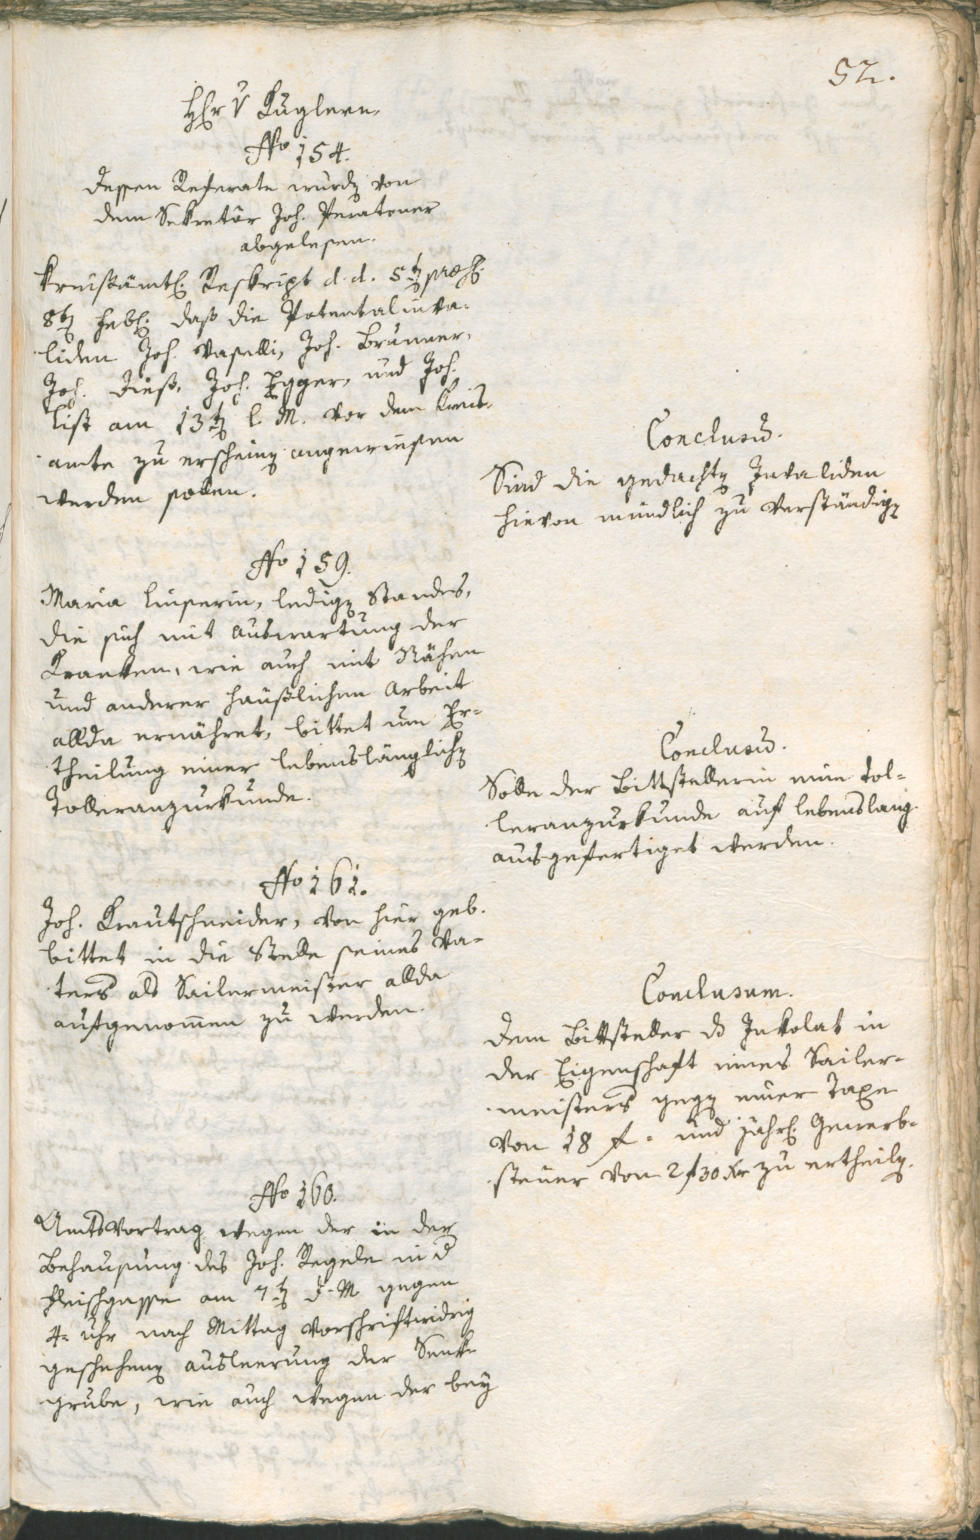 52.
Hr. v. Kuglern,
No 154.
Dessen Referate wurdn von
dem Sekretär Joh. Peratoner
abgelesen.
Kreisämtl. Reskript d. d. 5tn præs.
8tn Febr. daß die Patental inva-
liden Joh. Vaselli, Joh. Brunner,
Joh. Dieß, Joh. Egger, und Joh.
List am 13tn l. M. vor dem Kreis-
amte zu erscheinn angewiesen
werden sollen.
Conclusū.
Sind die gedachtn Invaliden
hievon mündlich zu verständign
No 159.
Maria Linserin, ledign Standes,
die sich mit Auswartung der
Kranken, wie auch mit Nähen
und anderer häußlichen Arbeit
allda ernähret, bittet um Er-
theilung einer lebenslänglichn
Tolleranzurkunde.
Conclusū.
Solle der Bittstellerin eine Tol-
leranzurkunde auf lebenslang
ausgefertiget werden.
No 161.
Joh. Krautschneider, von hier geb.
bittet in die Stelle seines Va-
ters als Sailermeister allda
aufgenom̄en zu werden.
Conclusum.
Dem Bittsteller ds Inkolat in
der Eigenschaft eines Sailer-
meisters gegn einer Taxe
von 18 f. und jährl. Gewerb-
steuer von 2 f 30 Kr zu ertheiln.
No 160.
Amtsvortrag wegen der in der
Behausung des Joh. Regele in d
Fleischgasse am 7tn d. M. gegen
4. Uhr nach Mittag vorschriftwidrig
geschehenn Ausleerung der Senk-
grube, wie auch wegen der bey